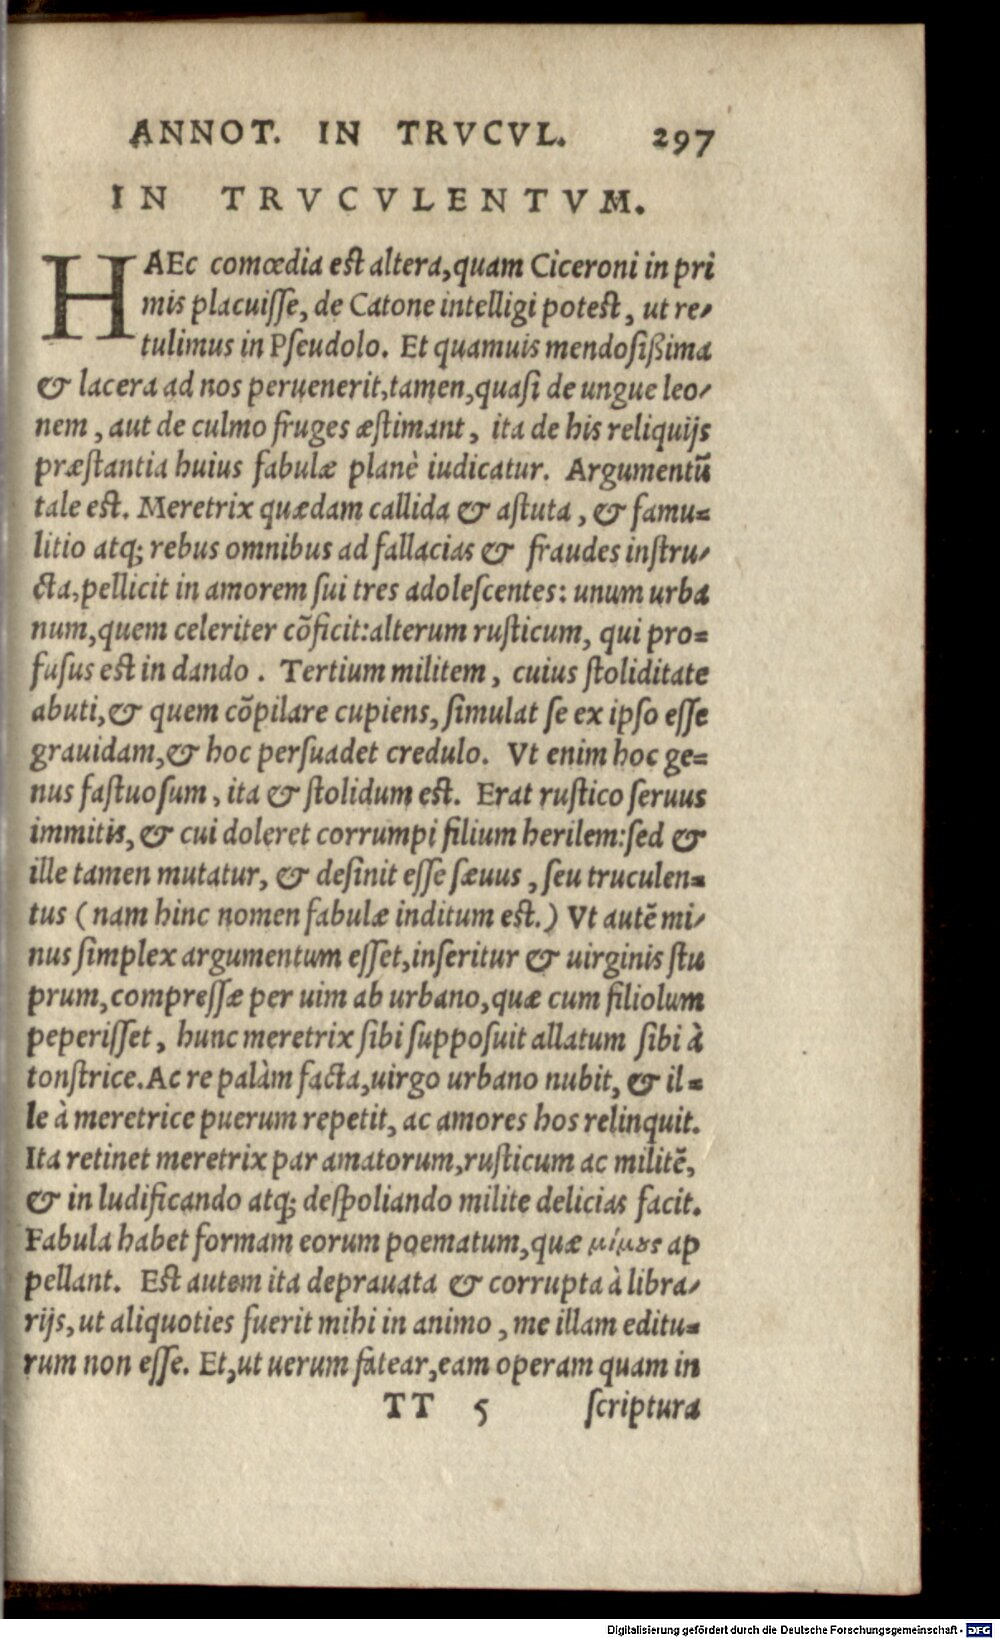 ANNOT. IN TRVCVL. 297
IN TRVCVLENTVM.
HAEc comœdia est altera, quam Ciceroni in pri
mis placuisse, de Catone intelligi potest, ut re-
tulimus in Pseudolo. Et quamuis mendosißima
& lacera ad nos peruenerit, tamen, quasi de ungue leo-
nem, aut de culmo fruges æstimant, ita de his reliquijs
præstantia huius fabulæ planè iudicatur. Argumentũ
tale est. Meretrix quædam callida & astuta, & famu-
litio atq; rebus omnibus ad fallacias & fraudes instru-
cta, pellicit in amorem sui tres adolescentes: unum urba
num, quem celeriter cõficit: alterum rusticum, qui pro-
fusus est in dando. Tertium militem, cuius stoliditate
abuti, & quem cõpilare cupiens, simulat se ex ipso esse
grauidam, & hoc persuadet credulo. Vt enim hoc ge-
nus fastuosum, ita & stolidum est. Erat rustico seruus
immitis, & cui doleret corrumpi filium herilem: sed &
ille tamen mutatur, & desinit esse sæuus, seu truculen-
tus (nam hinc nomen fabulæ inditum est.) Vt autẽ mi-
nus simplex argumentum esset, inseritur & uirginis stu
prum, compressæ per uim ab urbano, quæ cum filiolum
peperisset, hunc meretrix sibi supposuit allatum sibi à
tonstrice. Ac re palàm facta, uirgo urbano nubit, & il-
le à meretrice puerum repetit, ac amores hos relinquit.
Ita retinet meretrix par amatorum, rusticum ac militẽ,
& in ludificando atq; despoliando milite delicias facit.
Fabula habet formam eorum poematum, quæ μίμȣς ap
pellant. Est autem ita deprauata & corrupta à libra-
rijs, ut aliquoties fuerit mihi in animo, me illam editu-
rum non esse. Et, ut uerum fatear, eam operam quam in
TT 5 scriptura
Digitalisierung gefördert durch die Deutsche Forschungsgemeinschaft - DFG